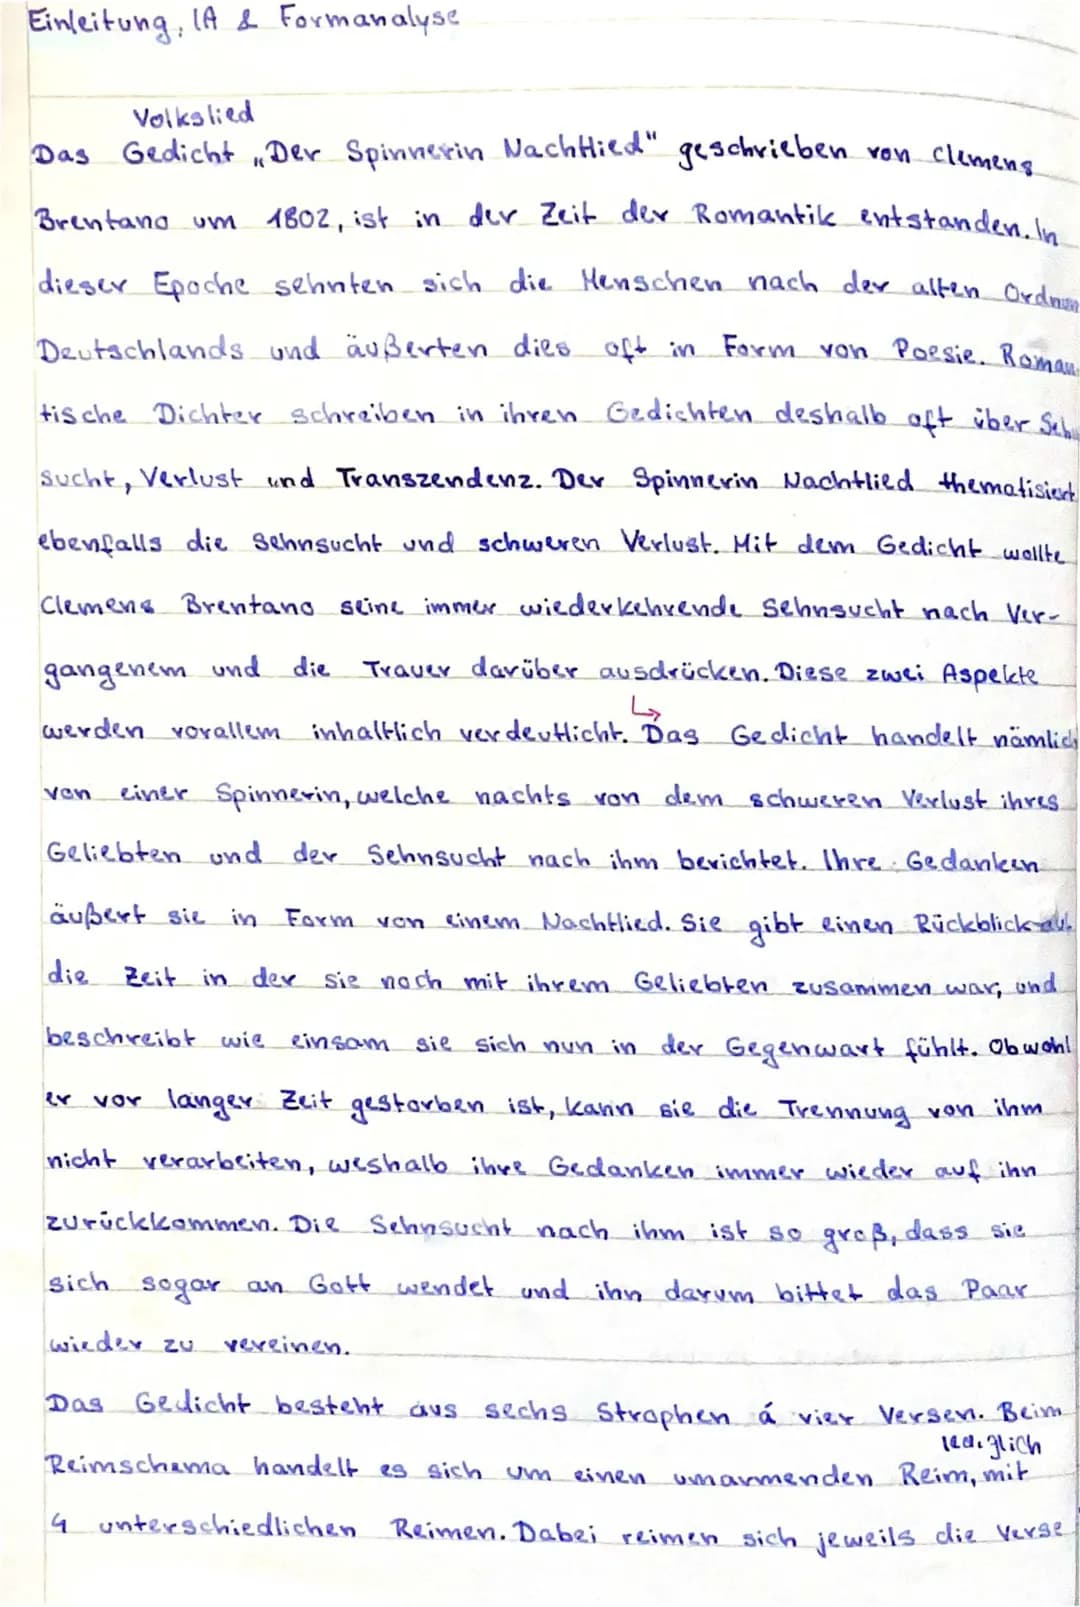 Einleitung, IA & Formanalyse
Volkslied
Das Gedicht „Der Spinnerin Nachtlied" geschrieben von Clemens
Brentano um 1802, ist in der Zeit der Romantik entstanden. In
dieser Epoche sehnten sich die Menschen nach der alten Ordnun
Deutschlands und äußerten dies oft in Form von Poesie. Roman-
tische Dichter schreiben in ihren Gedichten deshalb oft über Seh
sucht, Verlust und Transzendenz. Der Spinnerin Nachtlied thematisiert
ebenfalls die Sehnsucht und schweren Verlust. Mit dem Gedicht wollte
Clemens Brentano seine immer wiederkehrende Sehnsucht nach Ver-
gangenem und die Trauer darüber ausdrücken. Diese zwei Aspekte
werden vorallem inhaltlich verdeutlicht. Das Gedicht handelt nämlich
von einer Spinnerin, welche nachts von dem schweren Verlust ihres
Geliebten und der Sehnsucht nach ihm berichtet. Ihre Gedanken
äußert sie in Form von einem Nachtlied. Sie gibt einen Rückblick auf
die Zeit in der sie noch mit ihrem Geliebten zusammen war, und
beschreibt wie einsam sie sich nun in der Gegenwart fühlt. Obwohl
er vor langer Zeit gestorben ist, kann sie die Trennung von ihm
nicht verarbeiten, weshalb ihre Gedanken immer wieder auf ihn
zurückkommen. Die Sehnsucht nach ihm ist so groß, dass sie
sich sogar an Gott wendet und ihn darum bittet das Paar
wieder zu vereinen.
Das Gedicht besteht aus sechs Strophen á vier Versen. Beim
lediglich
Reimschema handelt es sich um einen umarmenden Reim, mit
4 unterschiedlichen Reimen. Dabei reimen sich jeweils die Verse